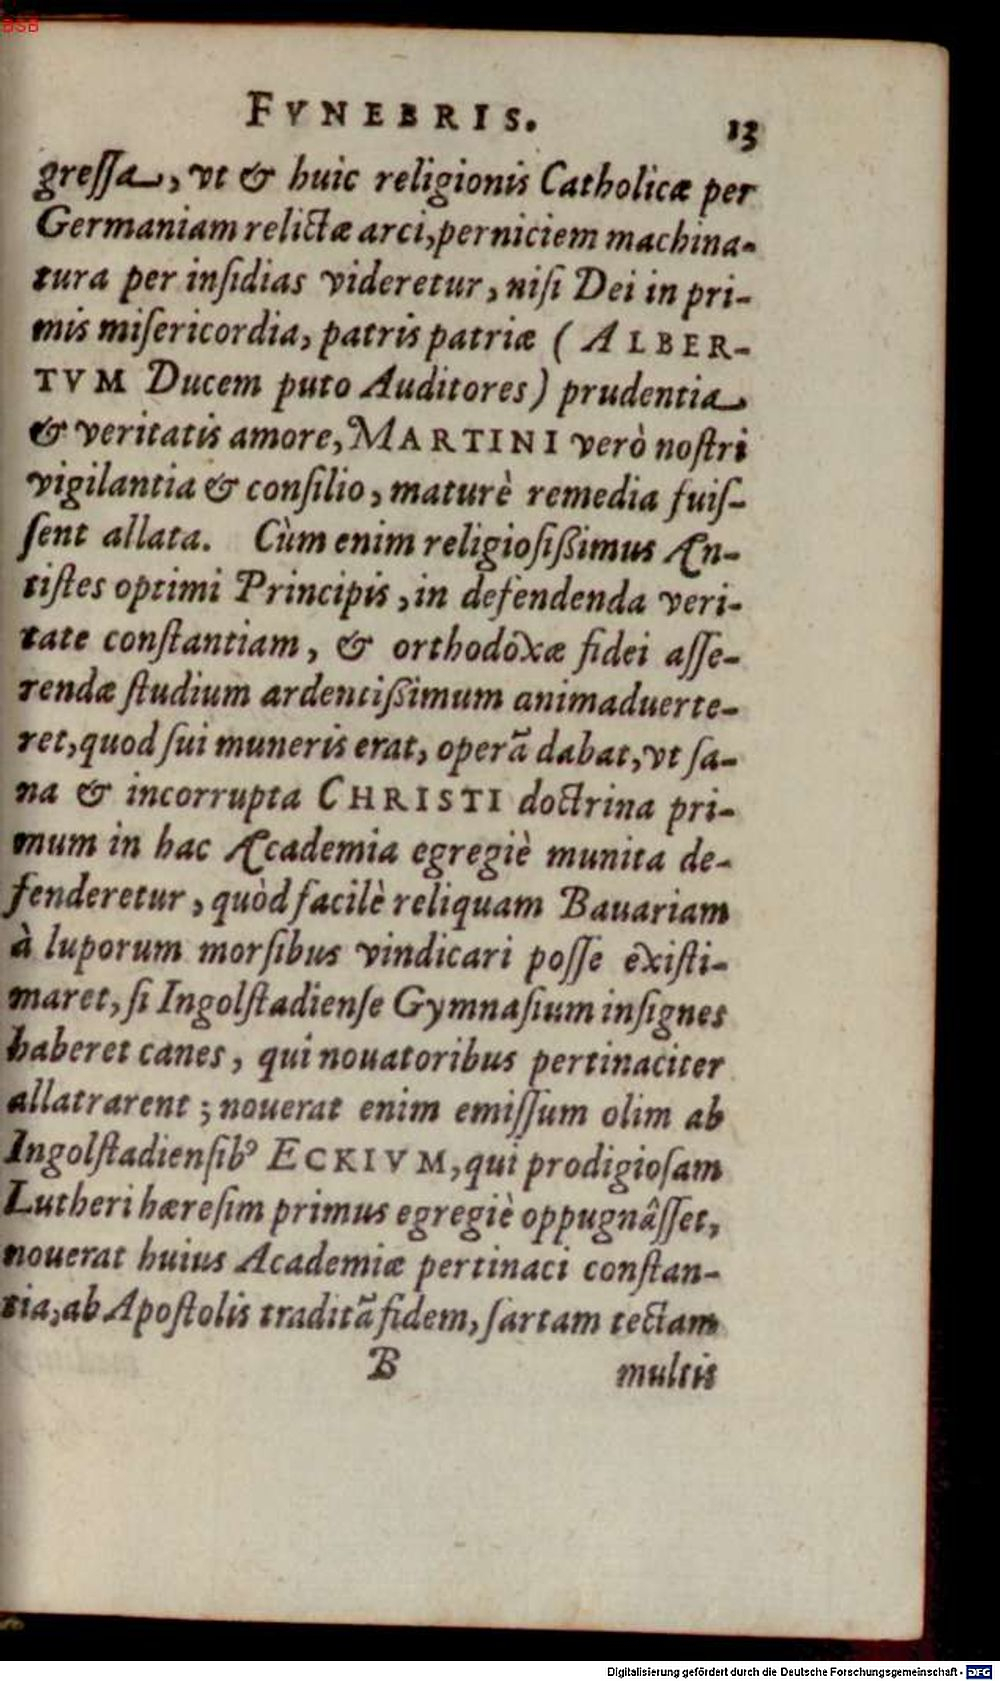 BSB
FVNEBRIS. 13
greſſa, vt & huic religionis Catholicæ per
Germaniam relictæ arci, perniciem machina-
tura per inſidias videretur, niſi Dei in pri-
mis miſericordia, patris patriæ (ALBER-
TVM Ducem puto Auditores) prudentia
& veritatis amore, MARTINI verò noſtri
vigilantia & conſilio, maturè remedia fuiſ-
ſent allata. Cùm enim religioſiſſimus An-
tiſtes optimi Principis, in defendenda veri-
tate conſtantiam, & orthodoxæ fidei aſſe-
rendæ ſtudium ardentiſſimum animaduerte-
ret, quod ſui muneris erat, operã dabat, vt ſa-
na & incorrupta CHRISTI doctrina pri-
mum in hac Academia egregiè munita de-
fenderetur, quòd facilè reliquam Bauariam
à luporum morſibus vindicari poſſe exiſti-
maret, ſi Ingolſtadienſe Gymnaſium inſignes
haberet canes, qui nouatoribus pertinaciter
allatrarent; nouerat enim emiſſum olim ab
Ingolſtadienſibꝰ ECKIVM, qui prodigioſam
Lutheri hæreſim primus egregiè oppugnâſſet,
nouerat huius Academiæ pertinaci conſtan-
tia, ab Apoſtolis traditã fidem, ſartam tectam
B multis
Digitalisierung gefördert durch die Deutsche Forschungsgemeinschaft - DFG